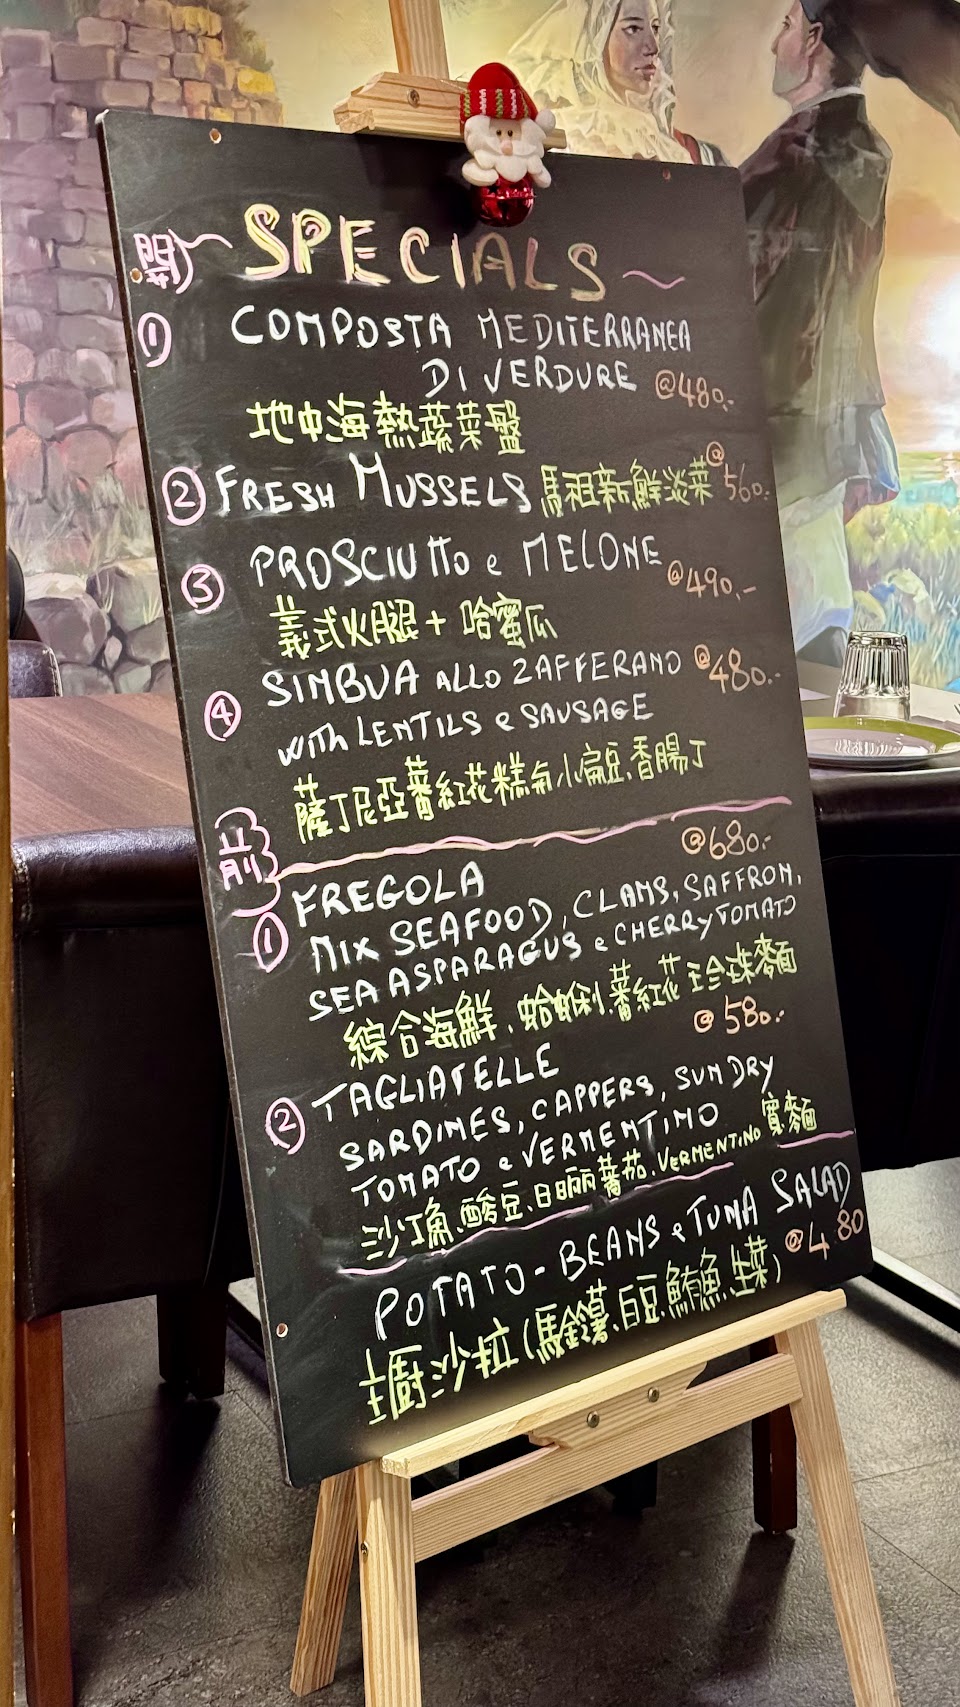 開 SPECIALS
① COMPOSTA MEDITERRANEA
DI VERDURE @480.-
地中海熱蔬菜盤
② FRESH MUSSELS 馬祖新鮮淡菜 @560.-
③ PROSCIUTTO e MELONE @490.-
義式火腿+哈蜜瓜
④ SIMBUA ALLO ZAFFERANO @480.-
with LENTILS e SAUSAGE
薩丁尼亞蕃紅花糕氣小扁豆、香腸丁
前
① FREGOLA @680.-
MIX SEAFOOD, CLAMS, SAFFRON,
SEA ASPARAGUS e CHERRY TOMATO
綜合海鮮、蛤蜊、蕃紅花 珍珠麥麵
② TAGLIATELLE @580.-
SARDINES, CAPPERS, SUN DRY
TOMATO e VERMENTINO
沙丁魚、酸豆、日晒蕃茄、VERMENTINO 寬麥麵
POTATO-BEANS e TUNA SALAD
主廚沙拉(馬鈴薯、白豆、鮪魚、生菜) @4.80